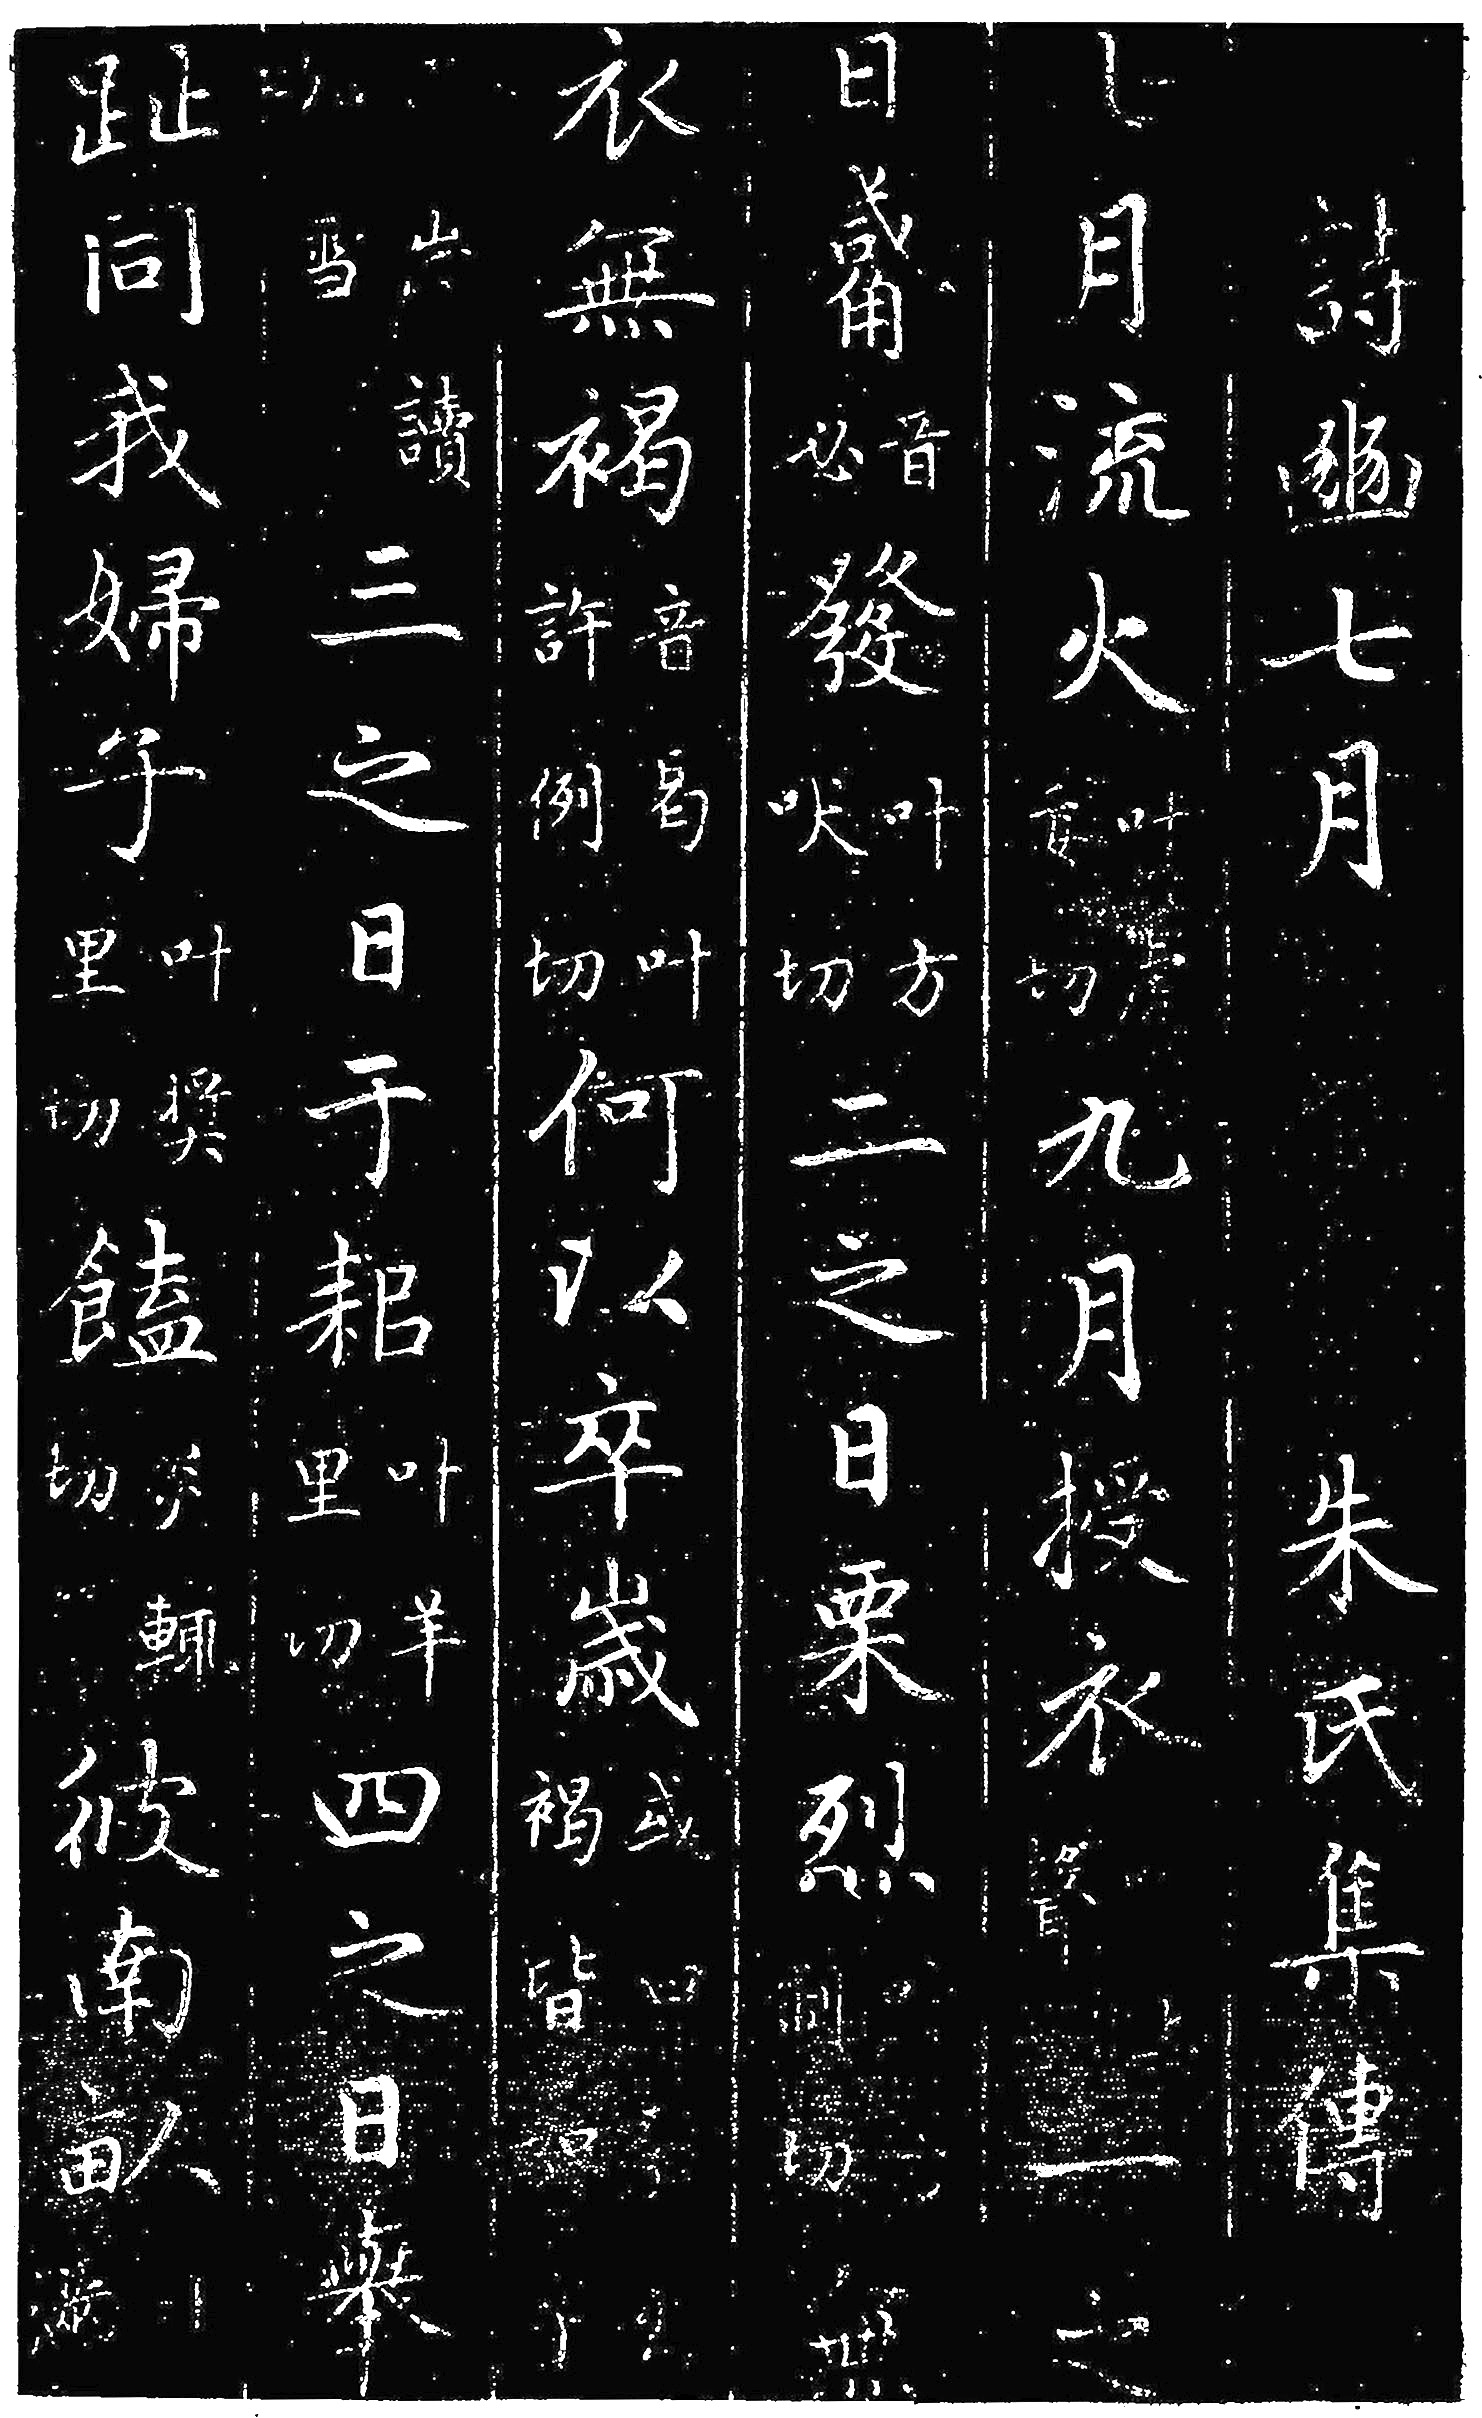 詩豳七月 朱氏集傳
七月流火叶虎委切九月授衣一之
日觱音必發叶方吠切二之日栗烈制切無
衣無褐音曷叶許例切何以卒歲或褐皆
讀三之日于耜叶羊里切四之日舉
趾同我婦子叶奬里切饁輒切彼南畝